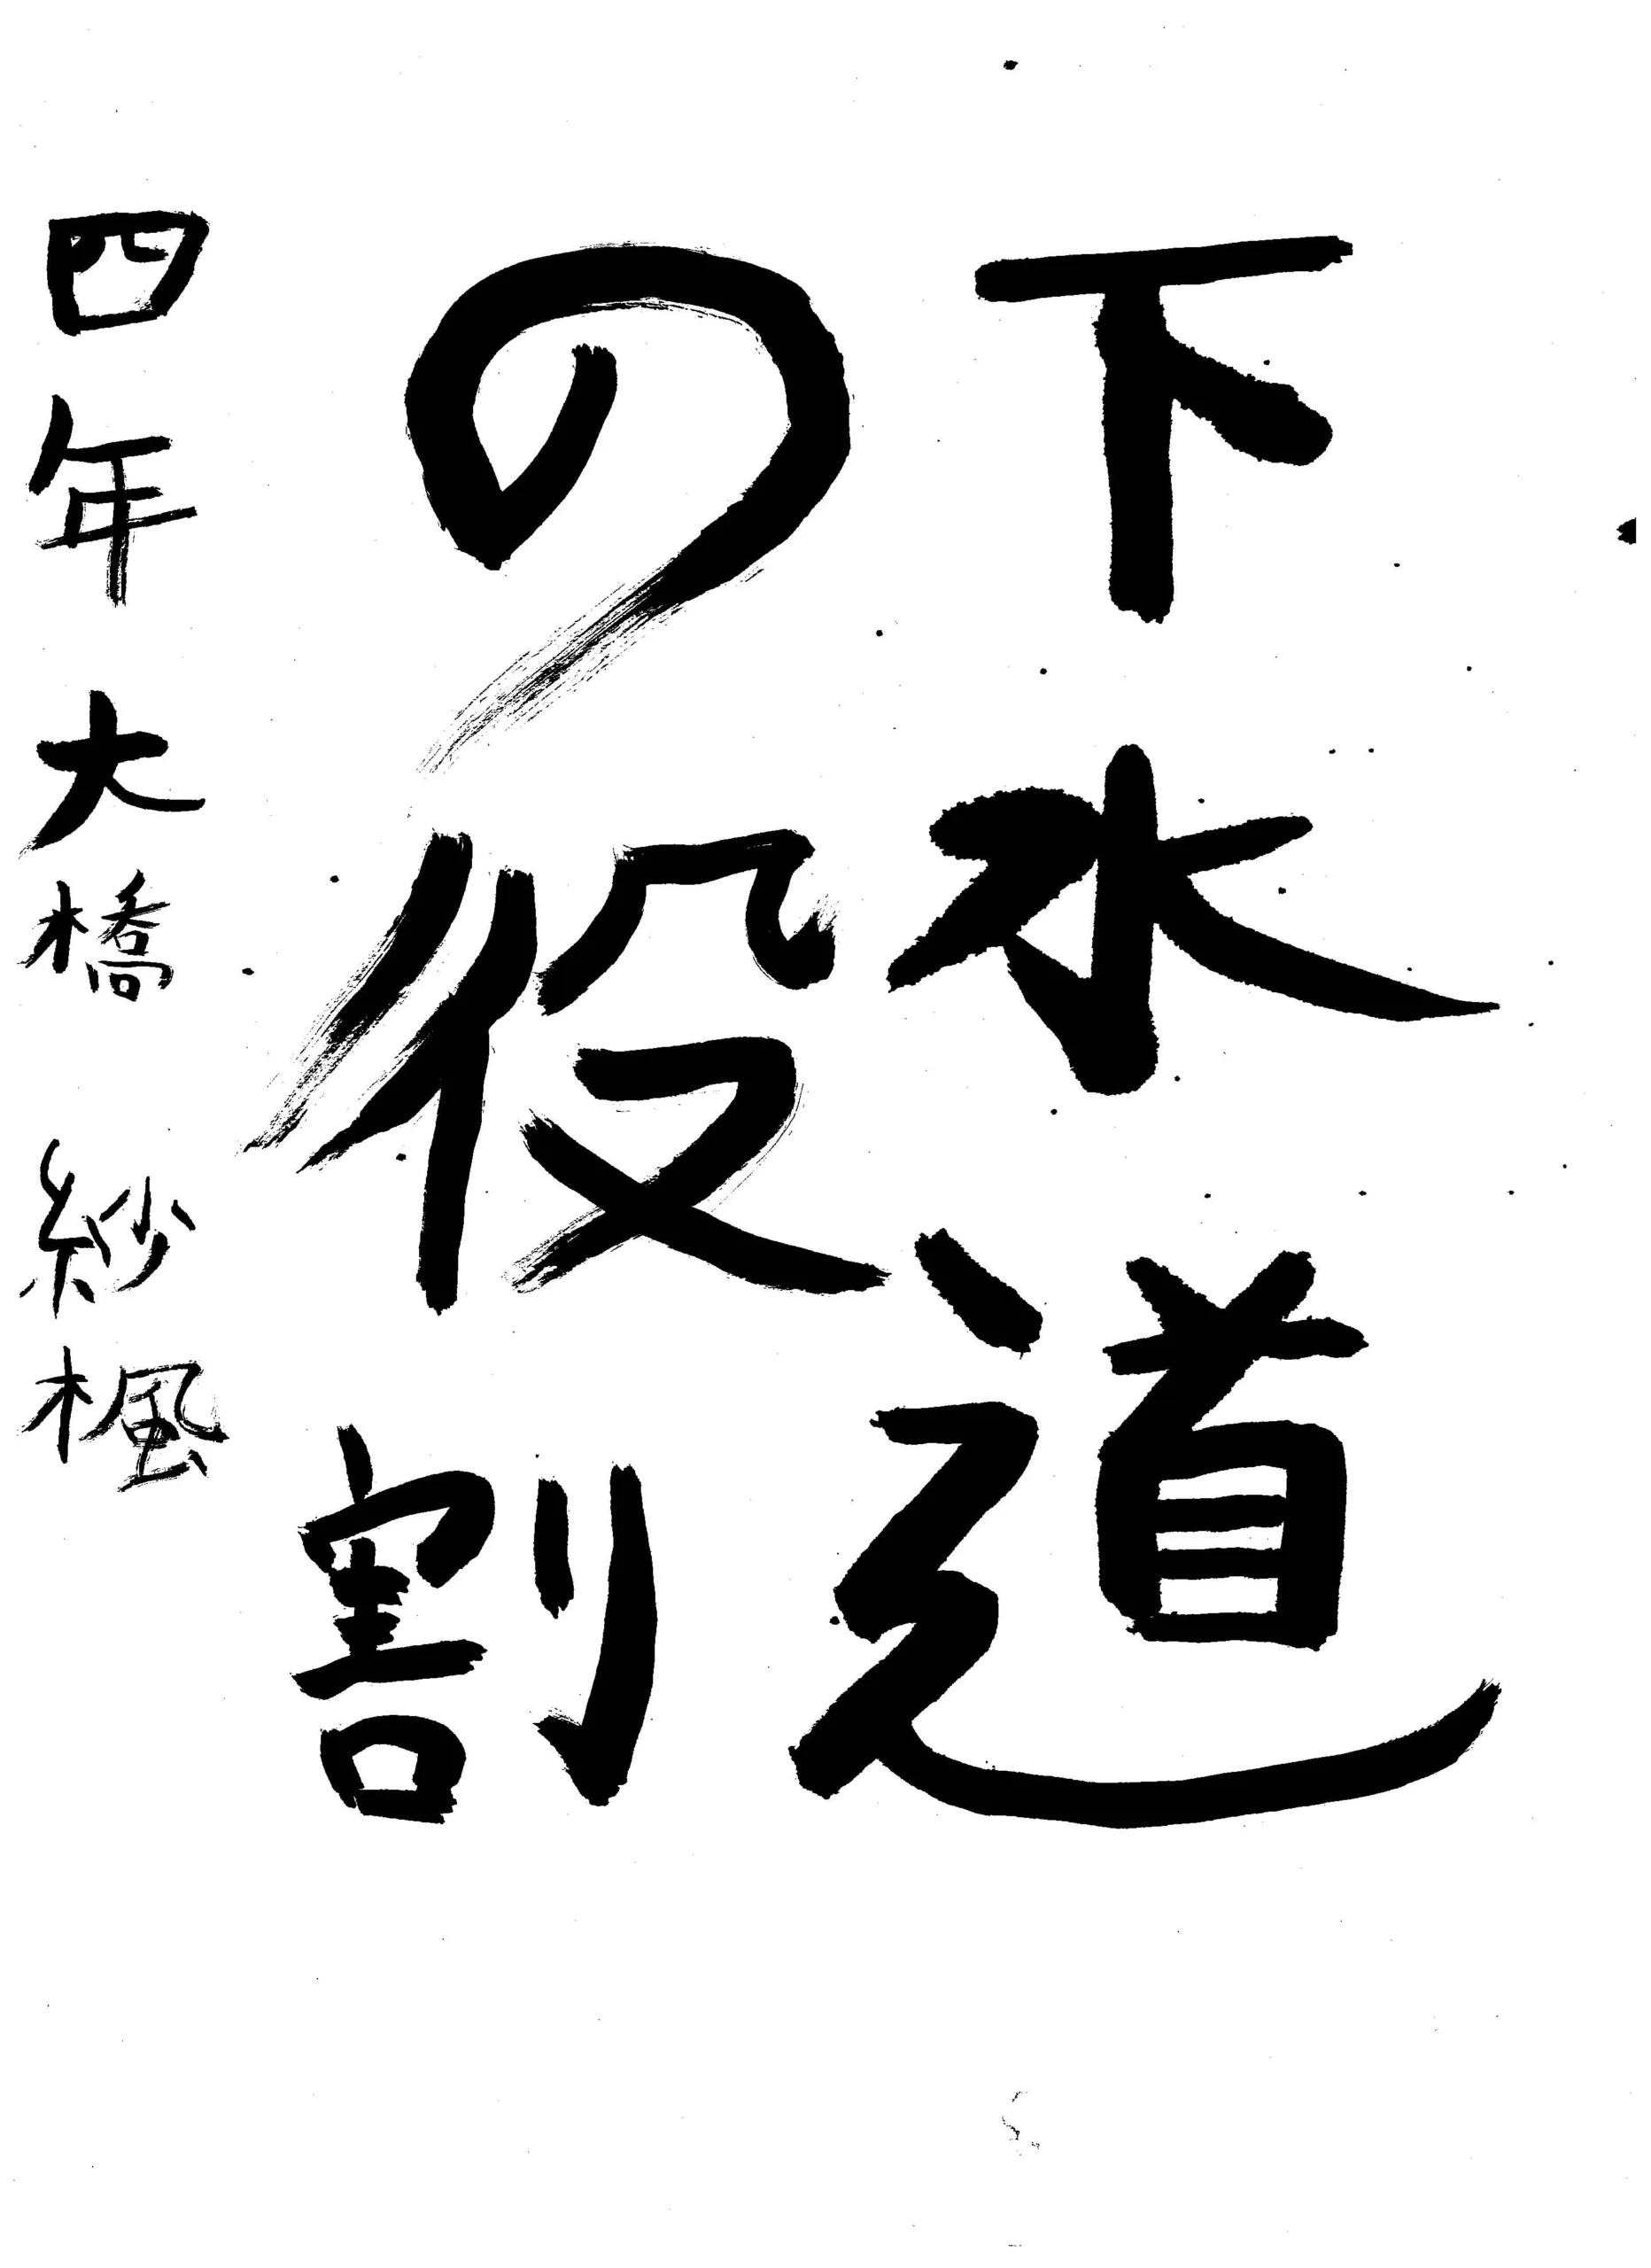 下水道
の役割
四年 大橋 紗楓